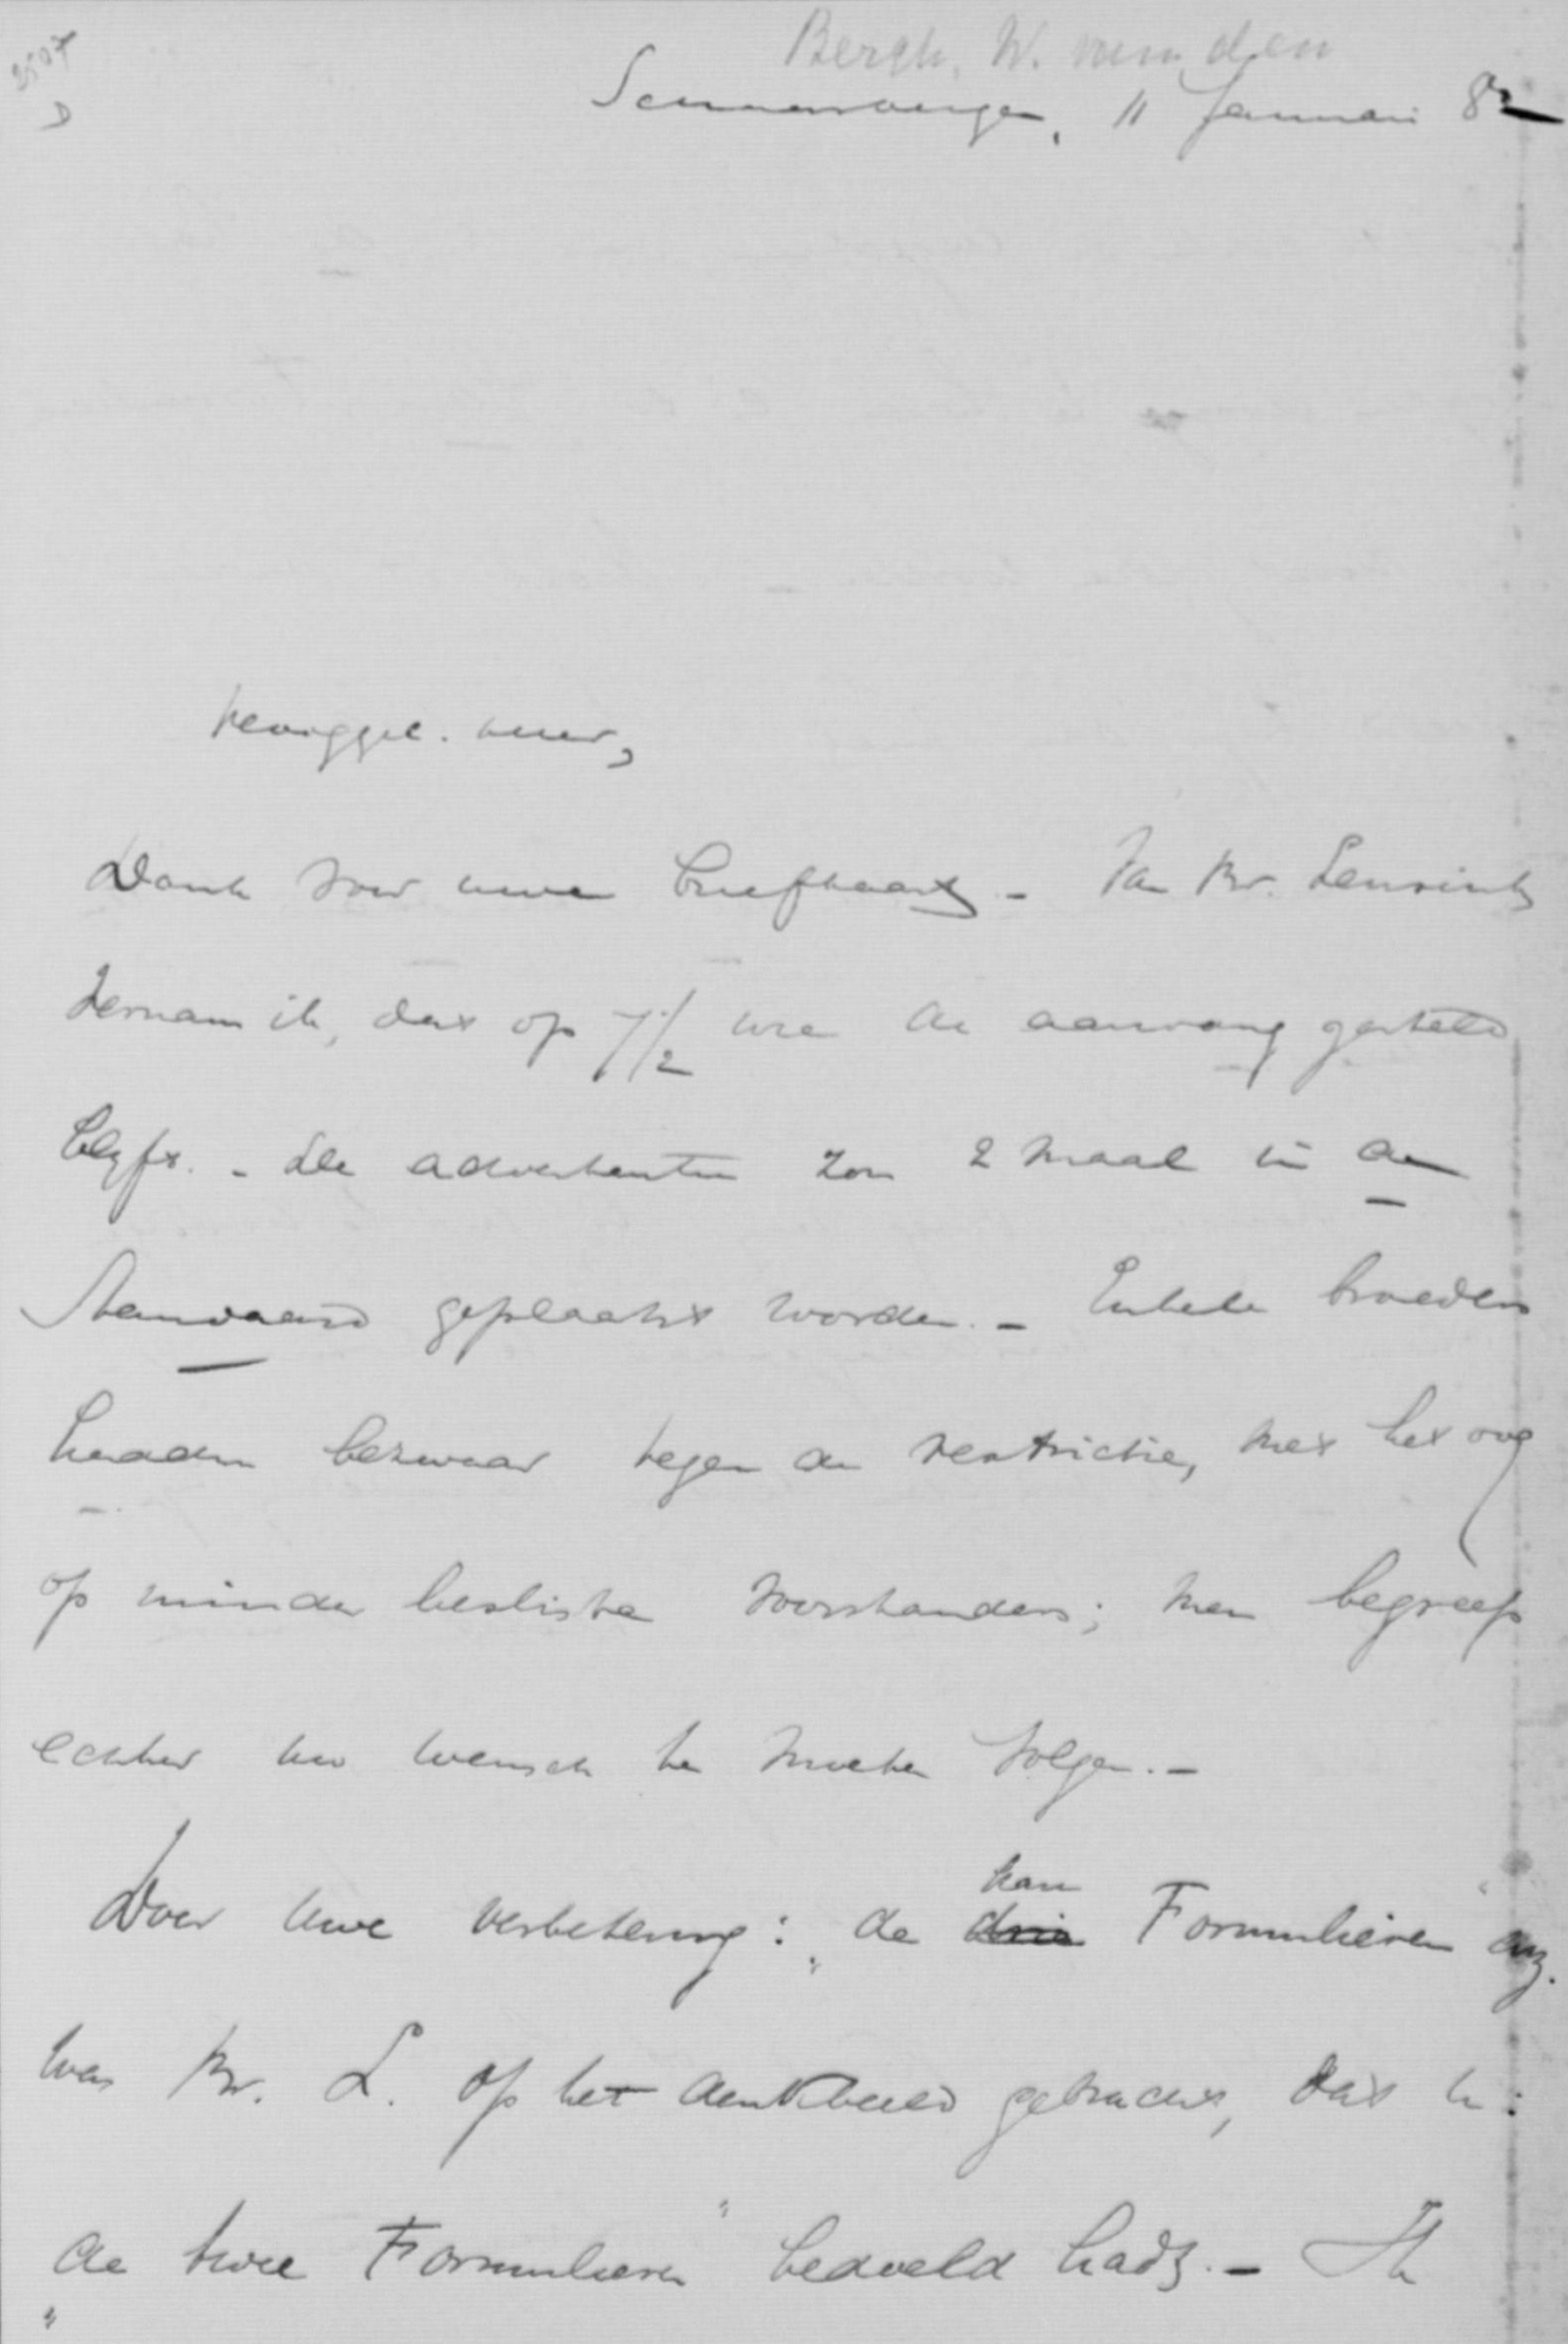 2507
Bergh, W. van den
Schaarsbergen, 11 Januari 82
hooggel. heer,
Dank voor uwe briefkaart. – Van Br. Lensink
vernam ik, dat op 7 1/2 ure de aanvang gesteld
blyft. – De advertentie zou 2 maal in de
Standaard geplaatst worden. – Enkele broeders
hadden bezwaar tegen de restrictie, met het oog
op minder besliste voorstanders; men begreep
echter uw wensch te moeten volgen. –
Door uwe verbetering: „de drie Formulieren" enz.
was Br. L. op het denkbeeld gebracht, dat u:
„de twee Formulieren" bedoeld hadt. – Ik